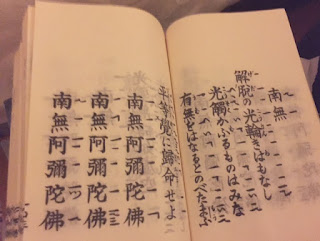 南無
解脱の光輪きはもなし
光觸かふるものはみな
有無をはなるとのべたまふ
平等覺に歸命せよ
南無阿彌陀佛
南無阿彌陀佛
南無阿彌陀佛